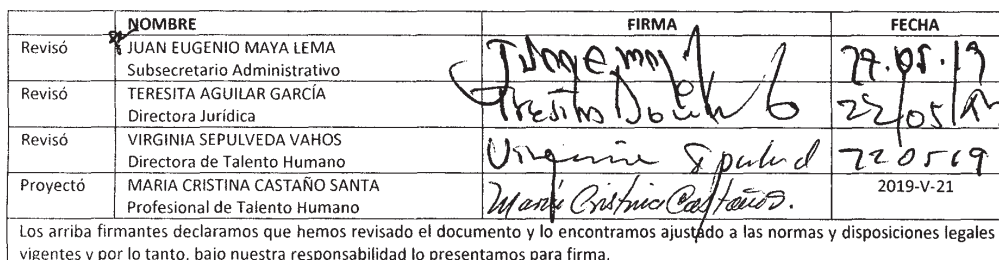 NOMBRE FIRMA FECHA
Revisó JUAN EUGENIO MAYA LEMA
Subsecretario Administrativo
Revisó TERESITA AGUILAR GARCÍA 22/05/19
Directora Jurídica
Revisó VIRGINIA SEPULVEDA VAHOS
Directora de Talento Humano Virginia Sepulved 220519
Proyectó MARIA CRISTINA CASTAÑO SANTA 2019-V-21
Profesional de Talento Humano María Cristina Castaño S.
Los arriba firmantes declaramos que hemos revisado el documento y lo encontramos ajustado a las normas y disposiciones legales
vigentes y por lo tanto, bajo nuestra responsabilidad lo presentamos para firma.